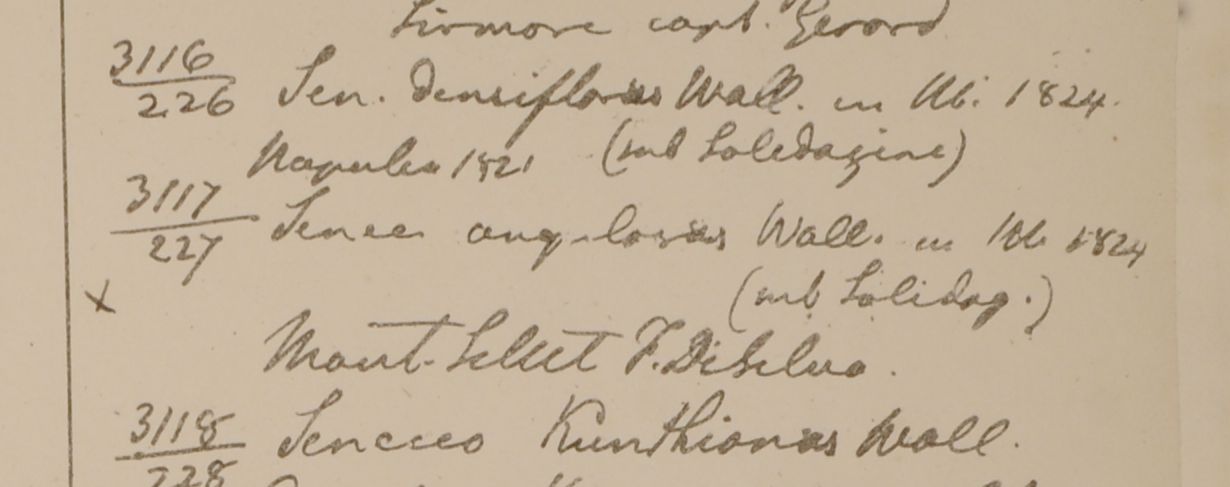 Sirmore capt. Gerard
3116
226 Sen. densiflorus Wall. in hb. 1824.
Napulia 1821 (sub Solidagine)
3117
227 Senec angulosus Wall. in hb. 1824
(sub Solidag.)
x
Mont. Sillet F. DeSilva.
3118
228 Senecio Kunthianus Wall.